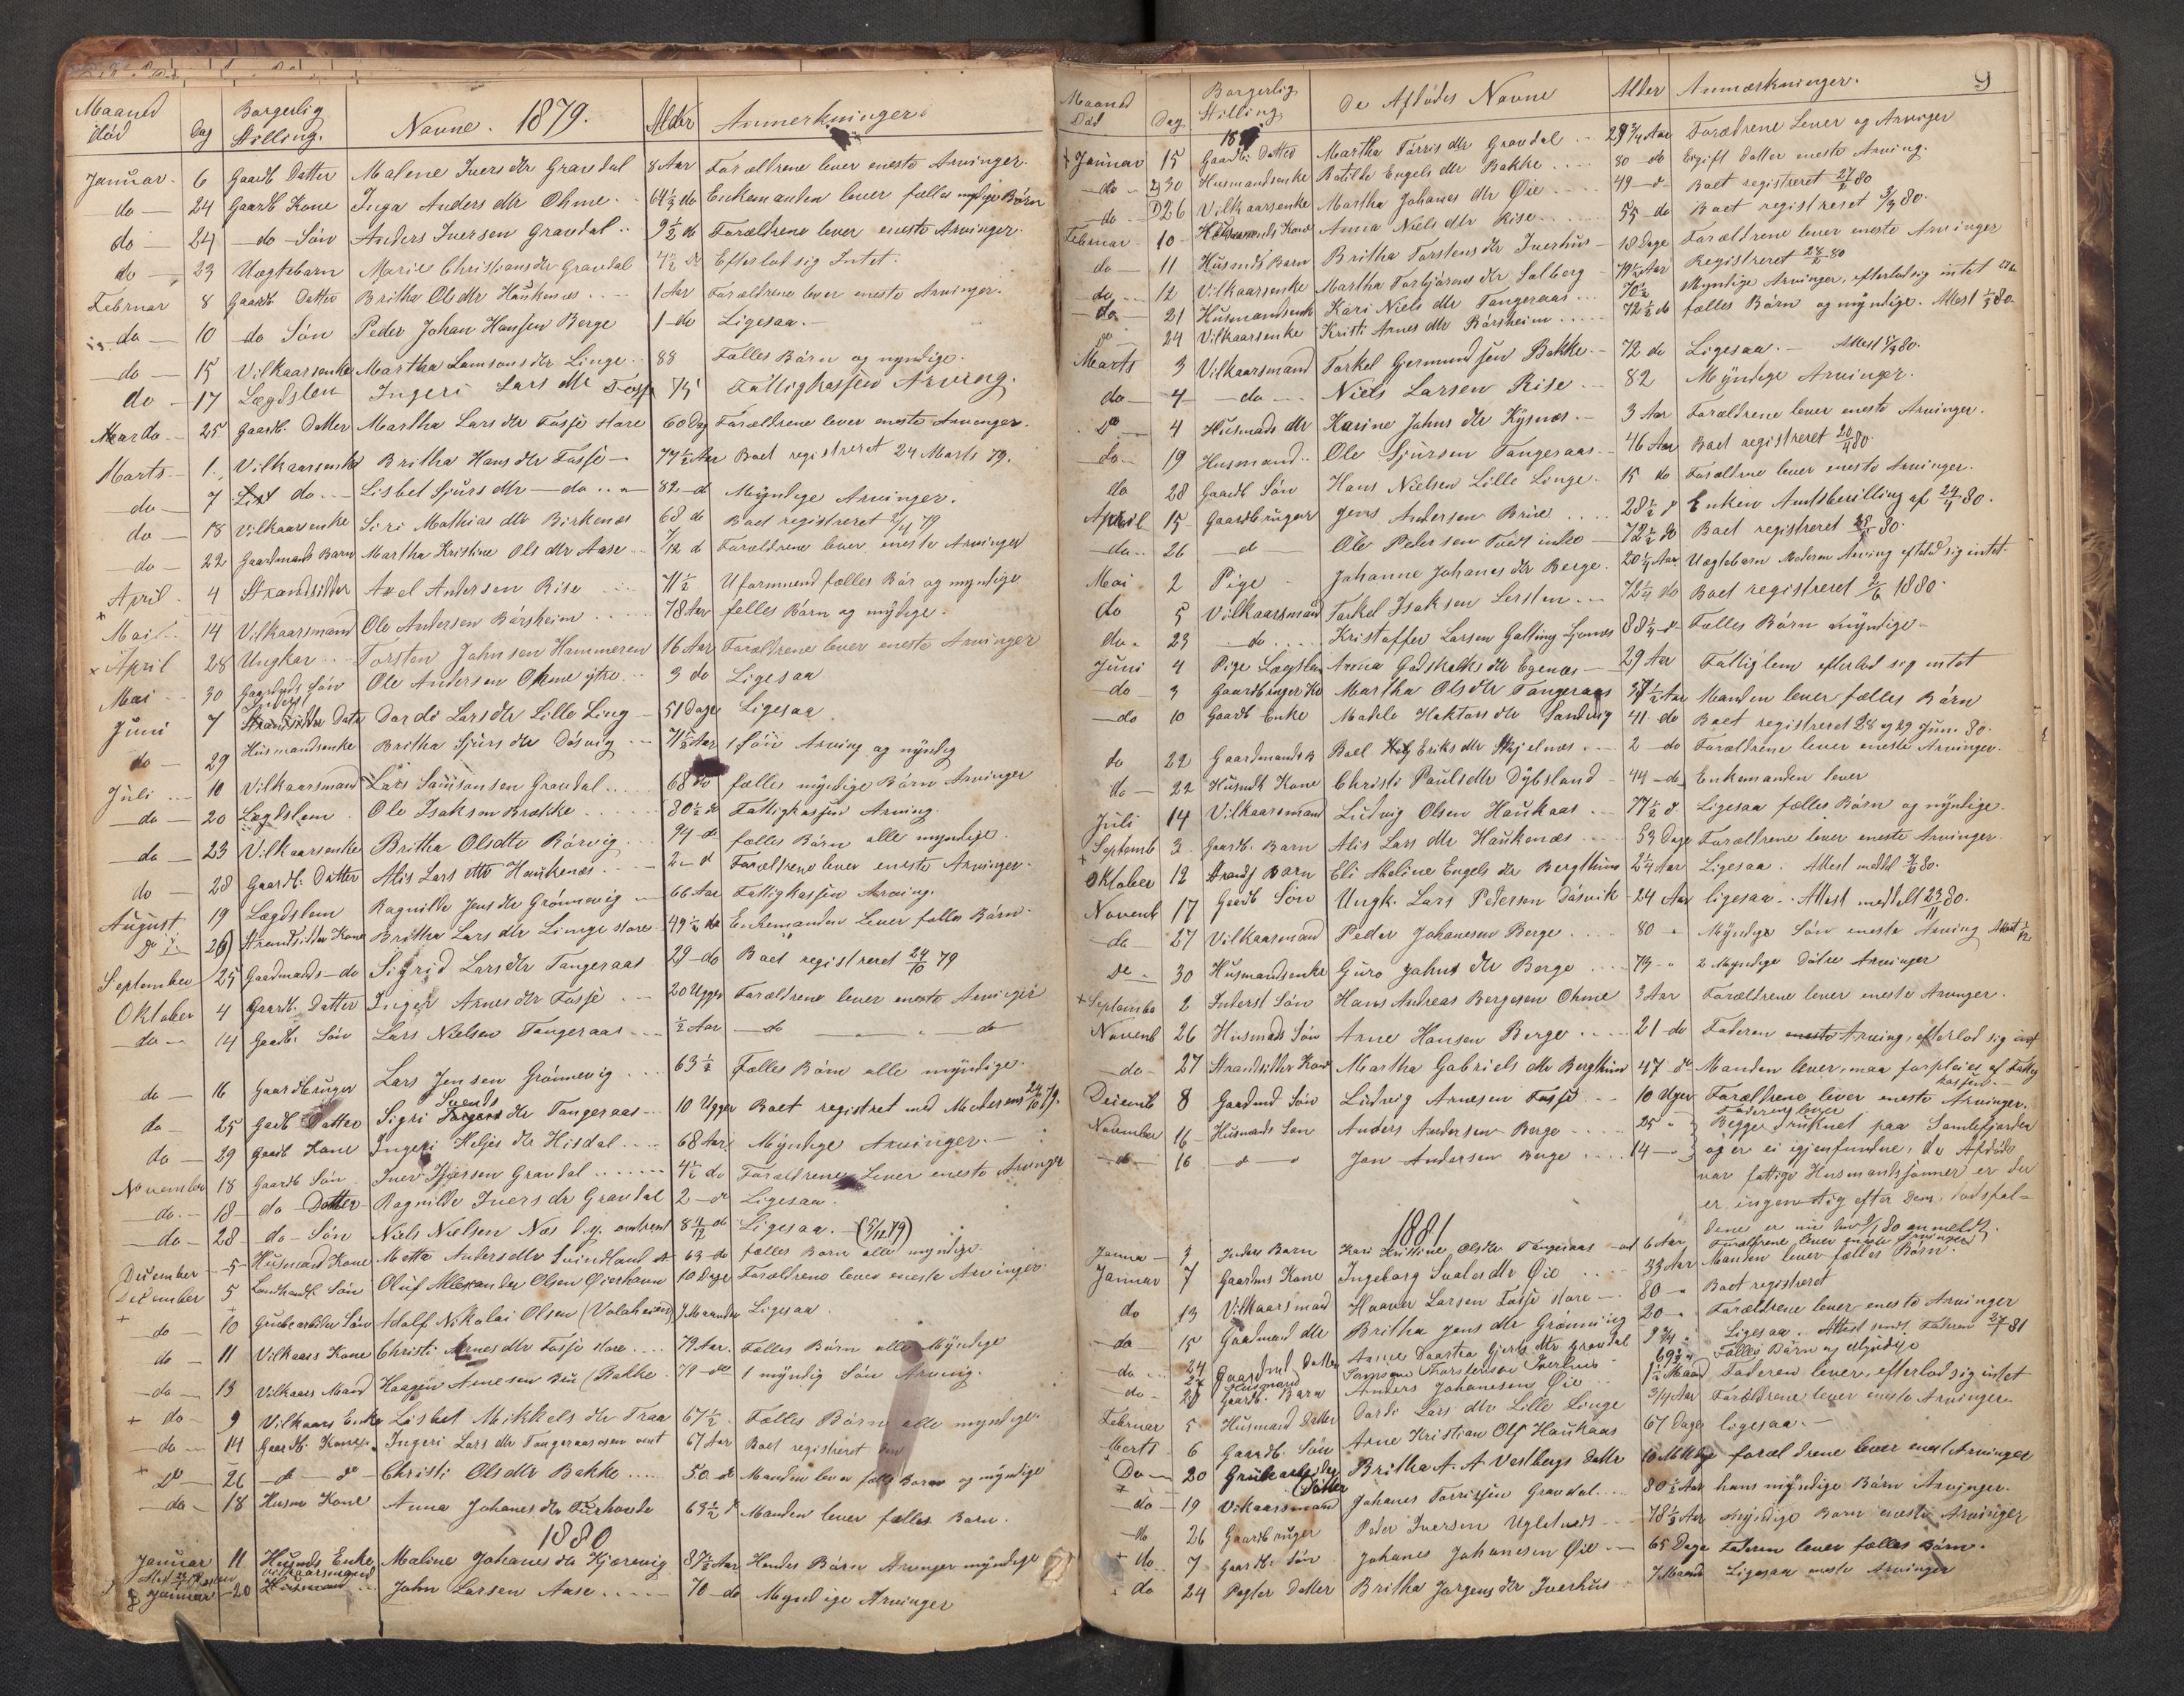 Maaned Död Dag Borgerlig Stilling. Navne. 1879. Alder Anmerkninger.
Januar. 6 Gaardb Datter Malene Ivers dtr Gravdal 8 Aar Forældrene lever eneste Arvinger.
do 24 Gaardb Kone Inga Anders dtr Ohme 64½ do Enkemanden lever fælles Börn
do 24 do Sön Anders Iversen Gravdal 9½ do Forældrene lever eneste Arvinger.
do 23 Uægtebarn Marie Christiansdtr Gravdal 4½ Efterlod sig Intet.
Februar 8 Gaardb Datter Britha Ols dtr Haukenæs 1 Aar Forældrene lever eneste Arvinger.
do 10 do Sön Peder Johan Hansen Berge 1 do Ligesaa.
do 15 Vilkaarsenke Martha Samsons dtr Linge 88 Fælles Börn og myndige.
do 17 Lægdslem Ingeri Lars dtr Fosse 75 Fattigkassen Arving.
do 25 Gaardb. Datter Martha Lars dtr Fosse store 60 Dag Forældrene lever eneste Arvinger.
Marts 1. Vilkaarsenke Britha Hans dtr Fosse 77½ Aar Boet registreret 24 Marts 79.
do 7 do Lisbet Sjurs dtr do 82 d Myndige Arvinger.
do 18 Vilkaarsenke Siri Mathias dtr Birkenæs 68 do Boet registreret 2/4 79
do 22 Gaardmands Barn Martha Kristine Ols dtr Aase 7/12 d Forældrene lever eneste Arvinger
April 4 Strandsidder Axel Andersen Rise 71½ Uformuend fælles Bör og myndige
Mai 14 Vilkaarsmand Ole Andersen Börsheim 78 Aar fælles Börn og myndige.
April 28 Ungkar Torsten Johnsen Hammeren 16 Aar Forældrene lever eneste Arvinger
Mai 30 Sön Ole Andersen Ohme ytre 3 do Ligesaa
Juni 7 Inderst Datr Dordi Lars dtr Lille Ling 51 Dage Ligesaa
do 29 Husmandsenke Britha Sjurs dtr Dösvig 71½ Aar 1 Sön Arving og myndig
Juli 10 Vilkaarsmand Lars Samsonsen Gravdal 68 do fælles myndige Börn Arvinger
do 20 Lægdslem Ole Isaksen Brække 80½ do Fattigkassen Arving.
do 23 Vilkaarsenke Britha Olsdtr Rörvig 94 d fælles Börn alle myndige.
do 28 Gaardb. Datter Alis Lars dtr Haukenæs 2 d Forældrene lever eneste Arvinger.
August 19 Lægdslem Ragnilde Jens dtr Grönnevig 66 Aar Fattigkassen Arving.
Do 26 Strandsidder Kone Britha Lars dtr Linge store 49½ do Enkemanden Lever fælles Börn.
September 25 Gaardmands do Sigrid Lars dtr Tangeraas 29 do Boet registreret 24/10 79
Oktober 4 Gaardb. Datter Inger Arnes dtr Fosse 20 Uger Forældrene lever eneste Arvinger
do 14 Gaardb. Sön Lars Nielsen Tangeraas ½ Aar do do
do 16 Gaardbruger Lars Jensen Grönnevig 63½ Fælles Börn alle myndige.
do 25 Gardb Datter Sigri Svends dtr Tangeraas 10 Uger Boet registret med Moderens 24/10 79.
do 29 Gaardb Kone Ingeri Helges dtr Hisdal 68 Aar Myndige Arvinger.
November 18 Gaardb Sön Iver Gravdal 4½ do Forældrene Lever eneste Arvinger
do 18 do Datter Ragnilde Ivers dr Gravdal 2 d Ligesaa
do 28 do Sön Niels Nielsen Næs 8 4/12 do Ligesaa. (5/12 79)
December 5 Husmand Kone Metta Andersdtr 63 do fælles Born alle myndige
December 5 Landhandl Sön Oluf Alexander Olsen Öierhavn 10 Dage Forældrene lever eneste Arvinger
do 10 Grubearbeider Sön Adolf Nikolai Olsen 7 Maaneder Ligesaa.
do 11 Vilkaars Kone Christi Arnes dtr Fosse store 79 Aar. Fælles Börn alle Myndige
do 13 Vilkaars Mand Haagen Arnesen Bakke 79 do 1 myndig Sön Arving.
do 9 Vilkaars Enke Lisbet Mikkels dtr Traa 67½ Fælles Börn alle myndige.
do 14 Gaardb. Kone Ingeri Lars dtr Tangeraas 67 Aar Boet registreret
Do 26 d do Christi Ols dtr Bakke 50 d Manden lever fælles Barn og myndige
do 18 Husm Kone Anna Johanes dtr 63½ d Manden lever fælles Barn.
1880
Januar 11 Husmds Enke Maline Johanes dtr Kjærevig 87½ Aar Hendes Börn Arvinger myndige
Januar 20 vilkaarsmand John Larsen Aase 70 do Myndige Arvinger
9
Maaned Död Dag Borgerlig Stilling De Afdödes Navne Alder Anmærkninger.
Januar 15 Gaardb. Datter Martha Torris dtr Gravdal 29¾ Aar Forældrene Lever og Arvinger
do 30 Husmandsenke Botilde Engels dtr Bakke 80 do Egift datter eneste Arving.
do 26 Vilkaarsenke Martha Johanes dtr Öie 49 d Boet registreret 27/2 80
Februar 10 Kone Anna Niels dtr Rise 55 do Boet registreret 3/3 80.
do 11 Husmds Barn Britha Torstens dtr Iverhus 18 Dage Forældrene lever eneste Arvinger
do 12 Vilkaarsenke Martha Torbjörns dtr Solberg 79½ Aar Registreret 24/2 80
do 21 Husmandsenke Kari Niels dtr Tangeraas 70½ Myndige Arvinger, efterlod sig intet
do 24 Vilkaarsenke Kristi Arnes dtr Börsheim 72½ do fælles Börn og myndige. Attest 1/3 80.
Marts 3 Vilkaarsmand Torkel Gjermundsen Bakke 72 do Ligesaa. Attest 5/3 80.
do 4 do Niels Larsen Rise 82 Myndige Arvinger.
Do 4 Husmads dtr Karine Johns dtr Kysnæs 3 Aar Forældrene lever eneste Arvinger.
do 19 Husmand Ole Sjursen Tangeraas 46 Aar Boet registreret 20/4 80.
do 28 Gaardb Sön Hans Nielsen Lille Linge 15 do Forældrene lever eneste Arvinger.
April 15 Gaardbruger Jens Andersen Brue 28½ d Enken Amtsbevilling af 24/4 80.
do 26 d Ole Pedersen Tveit indre 72½ do Boet registreret 80.
Mai 2 Pige Johanne Johanes dtr Berge 20¼ Aar Uægtebarn Moderen Arving efterlod sig intet.
do 5 Vilkaarsmand Torkel Isaksen 72¼ do Boet registreret 2/6 1880.
do 23 do Kristoffer Larsen 88¼ d Fælles Börn myndige
Juni 4 Pige Lægslem Anna Godskalks dtr Egenæs 29 Aar Fattiglem efterlod sig intet
do 3 Gaardbruger Ko Martha Ols dtr Tangeraas 37½ Aar Manden lever fælles Börn
do 10 Gaardb Enke Madele Haktors dtr Sandvig 41 do Boet registreret 28 og 29 Juni 80.
do 22 Gaardmands B Boel Eriks dtr Skjelnæs 2 do Forældrene lever eneste Arvinger.
do 22 Husmds Kone Christi Pauls dtr Dybsland 44 do Enkemanden lever
Juli 14 Vilkaarsmand Ludvig Olsen Haukaas 77½ d. Ligesaa fælles Börn og myndige.
Septemb 3 Gaardb. Barn Alis Lars dtr Haukenæs 53 Dage Forældrene lever eneste Arvinger.
Oktober 12 Strands Barn Eli Abeline Engels dtr Bergthun 2¼ Aar Ligesaa. Attest meddel 80.
Novemb 17 Gaardb Sön Ungk. Lars Pedersen Dösvik 24 Aar ligesaa. Attest meddelt 23/11 80.
do 27 Vilkaarsmand Peder Johanesen Berge 80 Myndige Sön eneste Arving Attest
Do 30 Husmandsenke Guro Johns dtr Berge 73 2 Myndige Dötre Arvinger
Septembe 2 Inderst Sön Hans Andreas Bergesen Ohme 3 Aar Forældrene lever eneste Arvinger.
Novemb 26 Husmads Sön Arne Hansen Berge 21 do Faderen eneste Arving, efterlod sig int
do 27 Strandsidder Kone Martha Gabriels dtr Bergthun 47 d Manden lever, maa forpleies af Fattig
kassen.
Decemb 8 Gaardmd Sön Ludvig Arnesen Fosse 10 Uger Forældrene lever eneste Arvinger.
Faderen lever
November 16 Husmads Sön Anders Andersen Berge 25 Begge Druknet paa Samlefjorden
do 16 d Jon Andersen Berge 14 og er ei igjenfundne, de Afdöde
var fattige Husmandssönner er der
er ingenting efter Dem, dödsfal-
dene er nu den 80 anmeldt.
1881
Janua 3 Inders Barn Kari Kristine Olsdtr Tangeraas 6 Aar Forældrene lever eneste Arvinger
Januar 7 Gaardms Kone Ingeborg dtr Öie 33 Aar Manden lever fælles Börn.
do 13 Vilkaarsmand Haaver Larsen Fosse store 80 Boet registreret
do 15 Gaardmand dtr Britha Jens dtr Grönnvig 20 Forældrene lever eneste Arvinger
do 24 Gaardmd Datter Anne Gjerts dtr Gravdal 9¾ Ligesaa. Attest sendt Faderen 27/1 81
Husmand Samson Thorstensen Iverhus 69½ Fælles Börn og Myndige
do 28 Gaardb. Barn Anders Johanesen Öie 1½ Maaned Faderen lever, efterlod sig intet
Februar 5 Husmand Datter Dordi Lars dtr Lille Linge ¾ Aar Forældrene lever eneste Arvinger
Marts 6 Gaardb. Sön Arne Kristian Ols Haukaas 67 Dage ligesaa.
Do 20 Datter Britha A. A Vestbergs Datter forældrene lever enest Arvinger
do 19 Vilkaarsmand Johanes Torrissen Gravdal 80½ Aar hans myndige Börn Arvinger.
do 26 Gaardbruger Peder Iversen 78½ Aar myndige Born eneste Arvinger
do 7 Gaardb. Sön Johanes Johanesen Öie 65 Dage Faderen lever fælles Börn.
do 24 Datter Britha Jorgens dtr Iverhus 7 Maand Ligesaa eneste Arvinger